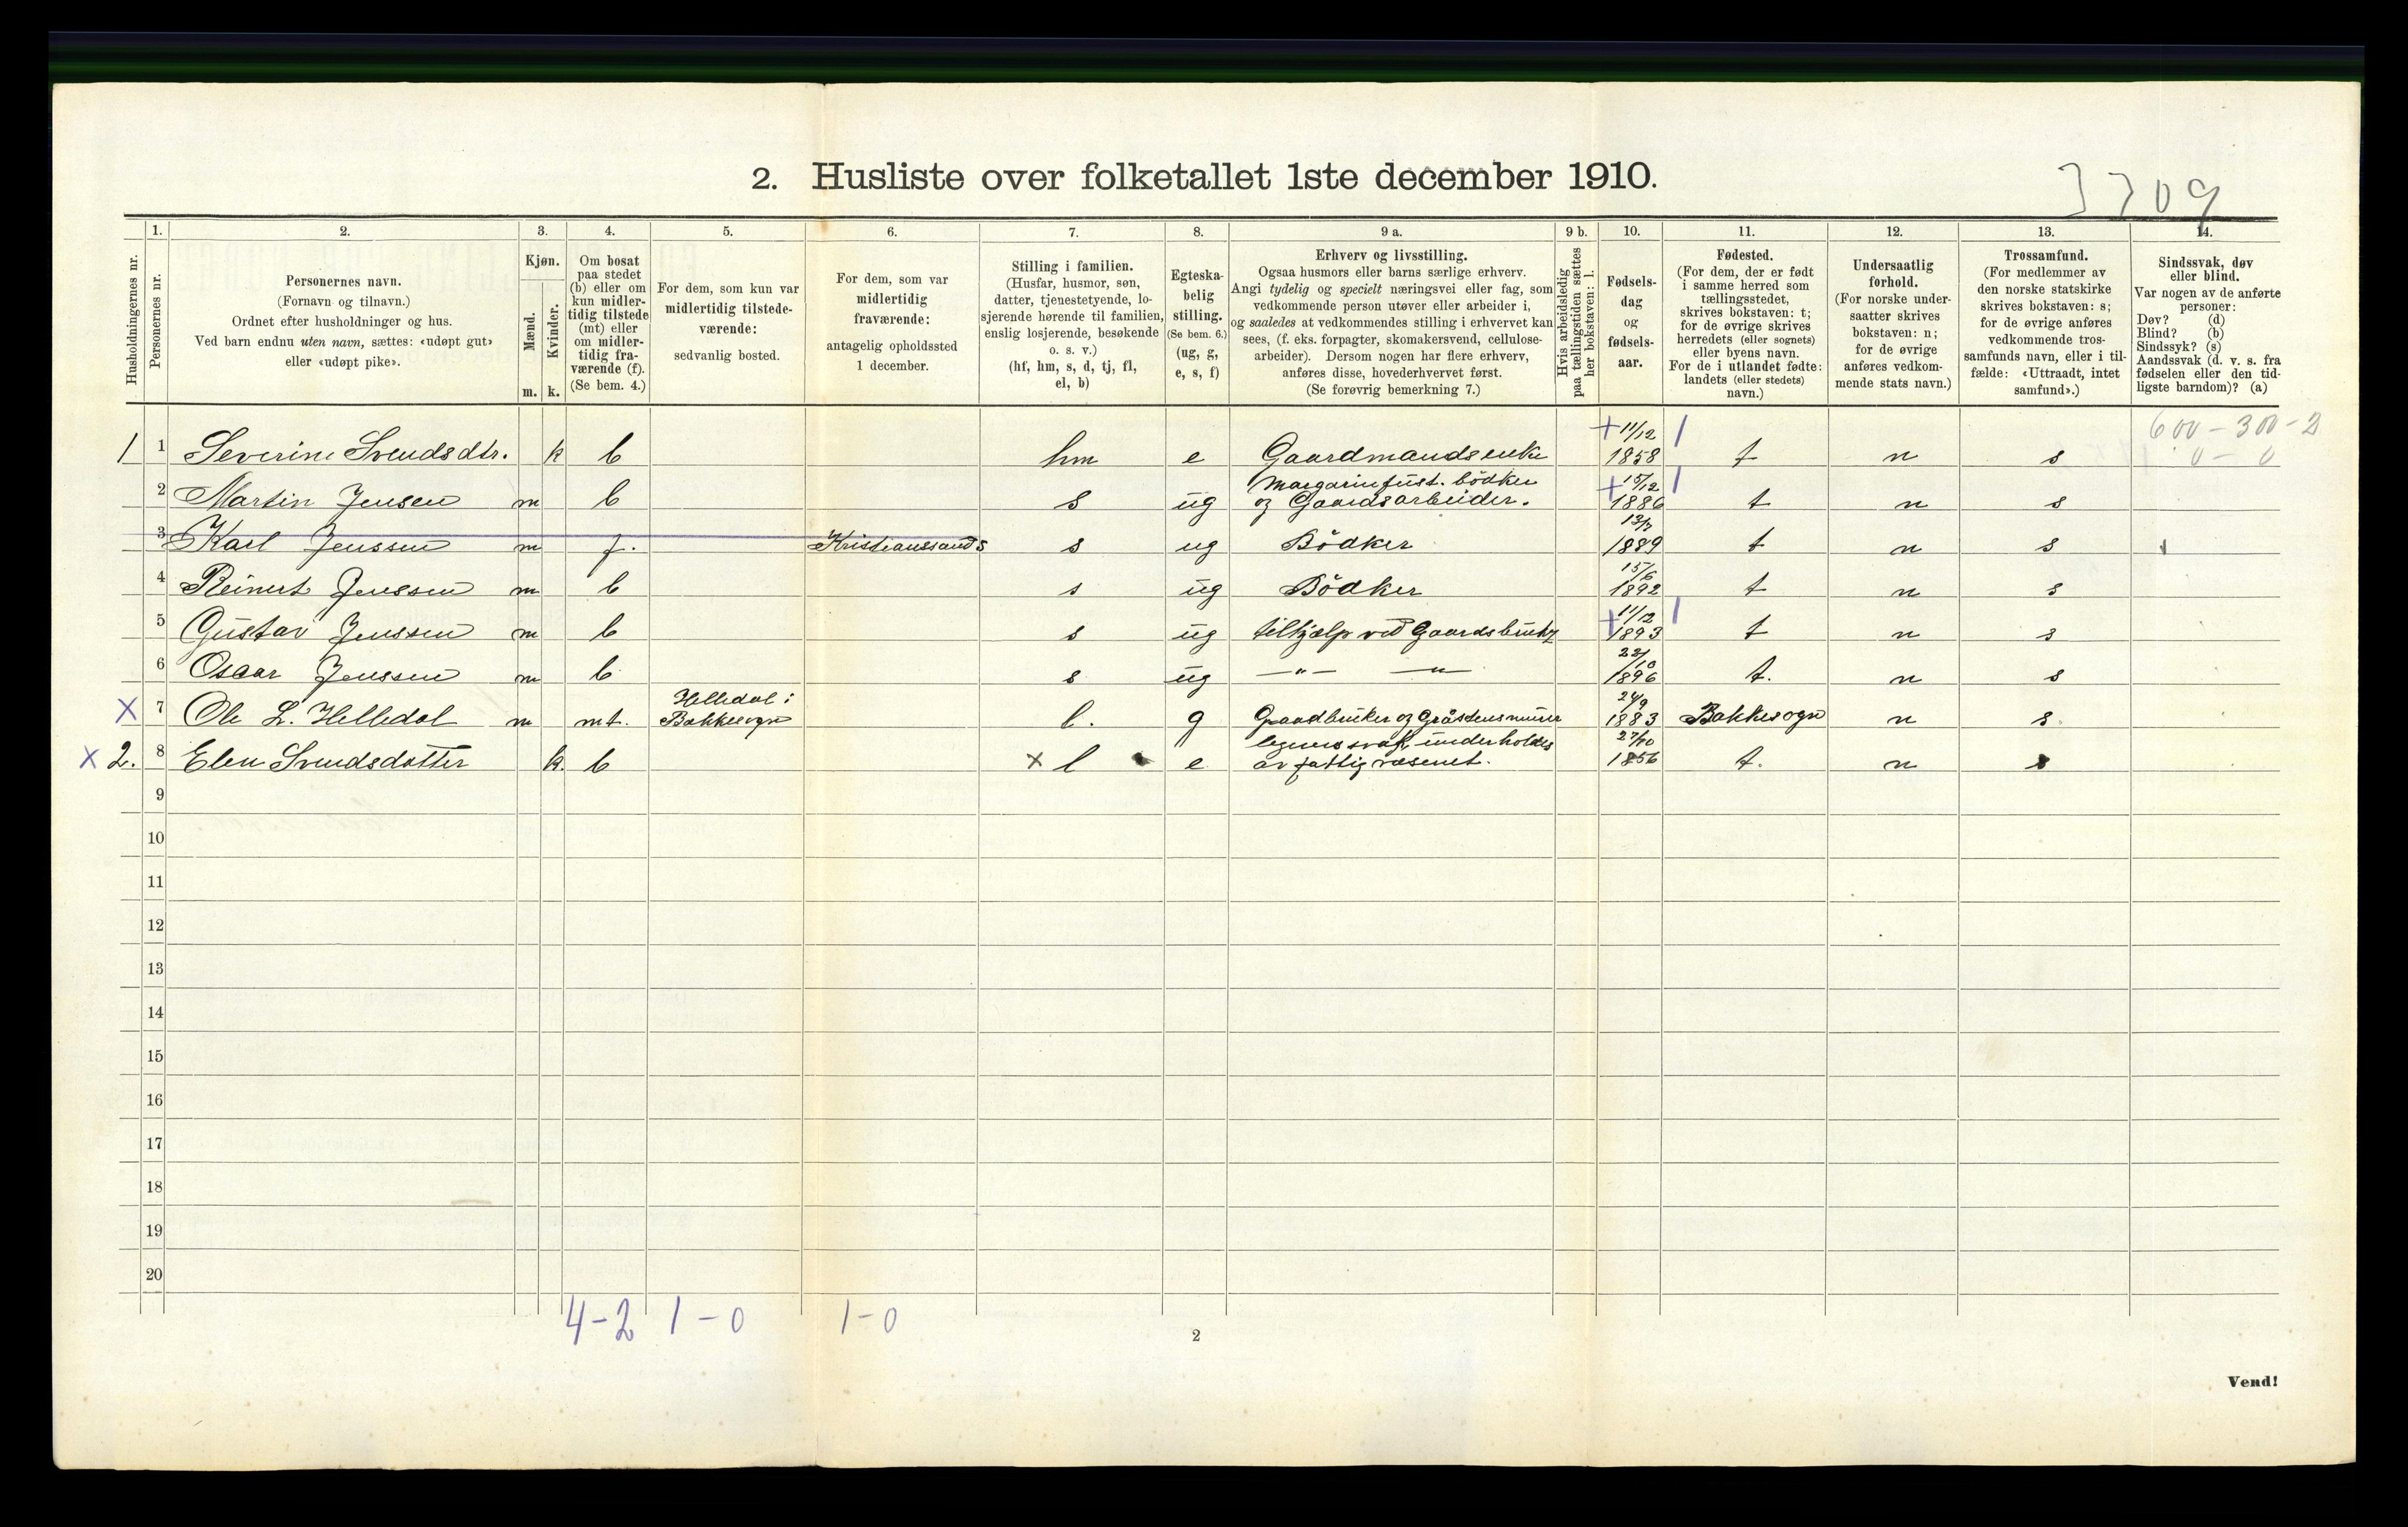 2. Husliste over folketallet 1ste december 1910.
3709
Husholdningernes nr.
1.
Personernes nr.
2.
Personernes navn.
(Fornavn og tilnavn.)
Ordnet efter husholdninger og hus.
Ved barn endnu uten navn, sættes: «udøpt gut»
eller «udøpt pike».
3.
Kjøn.
Mænd.
m.
Kvinder.
k.
4.
Om bosat
paa stedet
(b) eller om
kun midler-
tidig tilstede
(mt) eller
om midler-
tidig fra-
værende (f).
(Se bem. 4.)
5.
For dem, som kun var
midlertidig tilstede-
værende:
sedvanlig bosted.
6.
For dem, som var
midlertidig
fraværende:
antagelig opholdssted
1 december.
7.
Stilling i familien.
(Husfar, husmor, søn,
datter, tjenestetyende, lo-
sjerende hørende til familien,
enslig losjerende, besøkende
o. s. v.)
(hf, hm, s, d, tj, fl,
el, b)
8.
Egteska-
belig
stilling.
(Se bem. 6.)
(ug, g,
e, s, f)
9 a.
Erhverv og livsstilling.
Ogsaa husmors eller barns særlige erhverv.
Angi tydelig og specielt næringsvei eller fag, som
vedkommende person utøver eller arbeider i,
og saaledes at vedkommendes stilling i erhvervet kan
sees, (f. eks. forpagter, skomakersvend, cellulose-
arbeider). Dersom nogen har flere erhverv,
anføres disse, hovederhvervet først.
(Se forøvrig bemerkning 7.)
9 b.
Hvis arbeidsledig
paa tællingstiden sættes
her bokstaven: l.
10.
Fødsels-
dag
og
fødsels-
aar.
11.
Fødested.
(For dem, der er født
i samme herred som
tællingsstedet,
skrives bokstaven: t;
for de øvrige skrives
herredets (eller sognets)
eller byens navn.
For de i utlandet fødte:
landets (eller stedets)
navn.)
12.
Undersaatlig
forhold.
(For norske under-
saatter skrives
bokstaven: n;
for de øvrige
anføres vedkom-
mende stats navn.)
13.
Trossamfund.
(For medlemmer av
den norske statskirke
skrives bokstaven: s;
for de øvrige anføres
vedkommende tros-
samfunds navn, eller i til-
fælde: «Uttraadt, intet
samfund».)
14.
Sindssvak, døv
eller blind.
Var nogen av de anførte
personer:
Døv? (d)
Blind? (b)
Sindssyk? (s)
Aandssvak (d. v. s. fra
fødselen eller den tid-
ligste barndom)? (a)
600 - 300 - 2
0 - 0
1 1 Severine Svendsdtr. k b hm e Gaardmandsenke + 11/12 1858 t n s
2 Martin Jensen m b s ug Margarinfust. bödker og Gaardsarbeider. + 15/12 1886 t n s
3 Karl Jenssen m f. Kristianssands s ug Bödker 1889 t n s
4 Reinert Jenssen m b s ug Bödker 15/6 1892 t n s
5 Gustav Jenssen m b s ug tilhjælp ved Gaardsbruk + 11/12 1893 t n s
6 Oscar Jenssen m b s ug — " — — " — 22/10 1896 t. n s
X 7 Ole L. Helledal m mt. Helledal i Bakkesogn l. g Gaardbruker og Gråstensmurer 24/9 1883 Bakkesogn n s.
X 2. 8 Elen Svendsdotter k. b x l e legemssvak, underholdes av fattigvæsenet. 27/10 1856 t. n s
9
10
11
12
13
14
15
16
17
18
19
20
4-2 1-0 1-0
2
Vend!